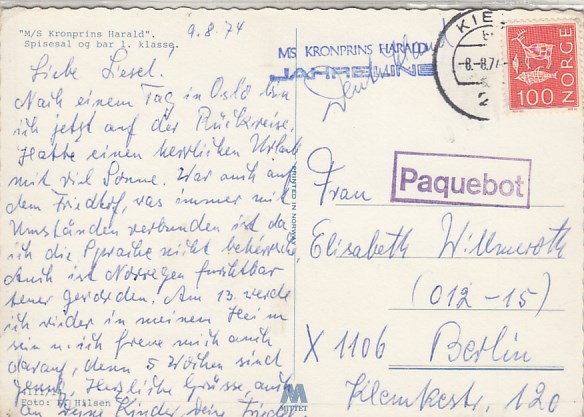 "M/S Kronprins Harald".
Spisesal og bar 1. klasse.
9.8.74
Liebe Liesel.
Nach einem Tag in Oslo bin
ich jetzt auf der Rückreise.
Hatte einen herrlichen Urlaub
mit viel Sonne. War auch auf
dem Friedhof, was immer mit
Umständen verbunden ist da
ich die Sprache nicht beherrsche,
auch ist Norwegen furchtbar
teuer geworden. Am 13. werde
ich wieder in meinem Heim
sein u. ich freue mich auch
darauf, denn 5 Wochen sind
genug. Herzliche Grüsse, auch
an Deine Kinder Dein
Foto: Hilsen
MS KRONPRINS HARALD
JAHRE LINE
Deutschland
KIE
-8.-8.7
2
100 NORGE
Paquebot
PRINTED IN NORWAY
Frau
Elisabeth Willmeroth
(012-15)
X 1106 Berlin
Klemkestr. 120
M
MITTET